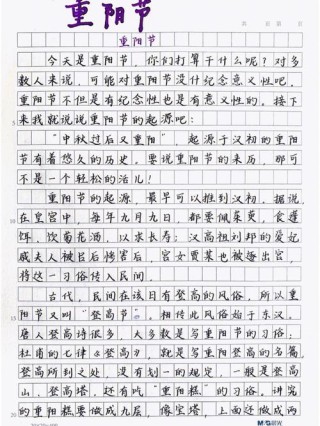 重阳节
重阳节
今天是重阳节，你们打算干什么呢？对多
数人来说，可能对重阳节没什纪念意义性吧，
重阳节不但是有纪念性也是有意义性的。接下
来我就说说重阳节的起源吧：
“中秋过后又重阳”，起源于汉初的重阳
节有着悠久的历史。要说重阳节的来历，那可
不是一个轻松的活儿！
重阳节的起源，最早可以推到汉初。据说，
在皇宫中，每年九月九日，都要佩茱萸，食蓬
饵，饮菊花酒，以求长寿；汉高祖刘邦的爱妃
戚夫人被吕后拷害后，宫女贾某也被逐出宫，
将这一习俗传入民间。
古代，民间在该日有登高的风俗，所以重
阳节又叫“登高节”。相传此风俗始于东汉。
唐人登高诗很多，大多数是写重阳节的习俗；
杜甫的七律《登高》，就是写重阳登高的名篇。
登高所到之处，没有划一的规定，一般是登高
山、登高塔，还有吃“重阳糕”的习俗。讲究
的重阳糕要做成九层，像宝塔，上面还做成两
M&G晨光